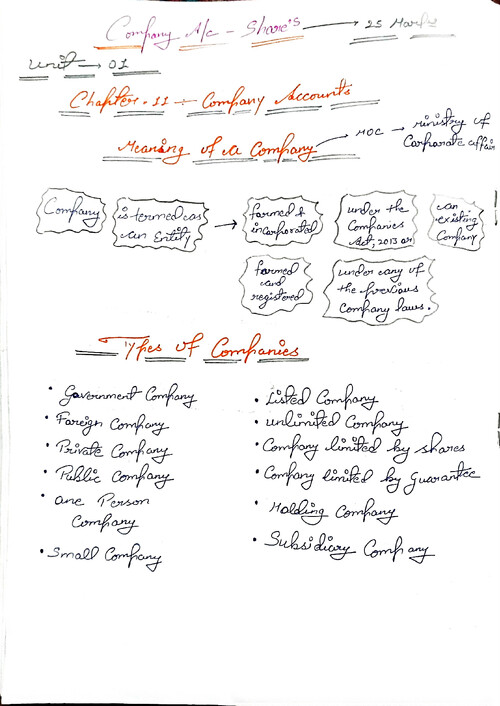 Company A/c - Share's → 25 Marks
Unit → 01
Chapter-11 ÷ Company Accounts
Meaning of a Company → MOC → ministry of Corporate affair
Company
is termed as an Entity → formed & incorporated
under the Companies Act, 2013 or
an existing Company
formed and registered
under any of the previous Company laws.
Types of Companies
• Government Company
• Foreign Company
• Private Company
• Public Company
• one Person
Company
• Small Company
• Listed Company
• unlimited Company
• Company limited by shares
• Company limited by Guarantee
• Holding Company
• Subsidiary Company